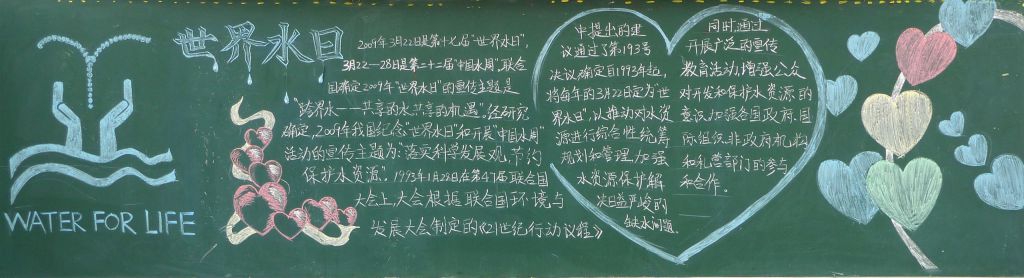 世界水日
WATER FOR LIFE
2009年3月22日是第十七届“世界水日”，
3月22—28日是第二十二届“中国水周”，联合
国确定2009年“世界水日”的宣传主题是
“跨界水——共享的水、共享的机遇”。经研究
确定，2009年我国纪念“世界水日”和开展“中国水周”
活动的宣传主题为：“落实科学发展观，节约
保护水资源”。1993年1月28日在第47届联合国
大会上，大会根据联合国环境与
发展大会制定的《21世纪行动议程》
中提出的建
议通过了第193号
决议，确定自1993年起，
将每年的3月22日定为“世
界水日”，以推动对水资
源进行综合性统筹
规划和管理，加强
水资源保护，解
决日益严峻的
缺水问题。
同时，通过
开展广泛的宣传
教育活动，增强公众
对开发和保护水资源的
意识，加强各国政府、国
际组织、非政府机构
和私营部门的参与
和合作。